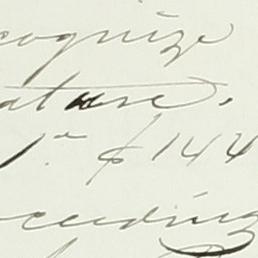 cognize
ature.
1.- $144
ceeding